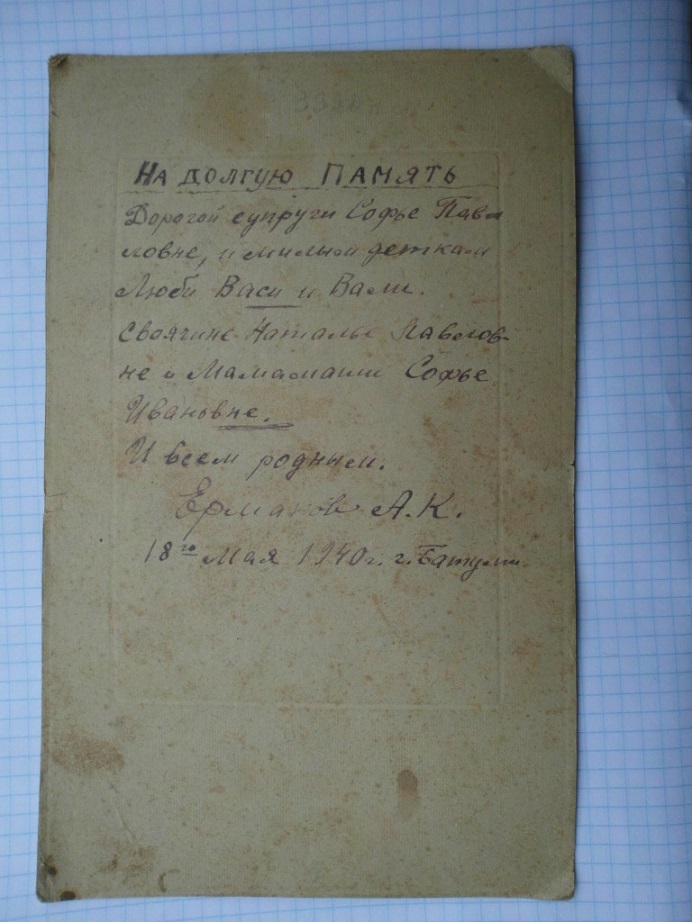 НА ДОЛГУЮ ПАМЯТЬ
Дорогой супруги Софье Павл
ловне, и милым деткам
Люби Васи и Вали.
Своячине Наталье Павлов-
не и Мамамаши Софье
Ивановне.
И всем родным.
Ермаков А.К.
18го Мая 1940г. г. Батуми